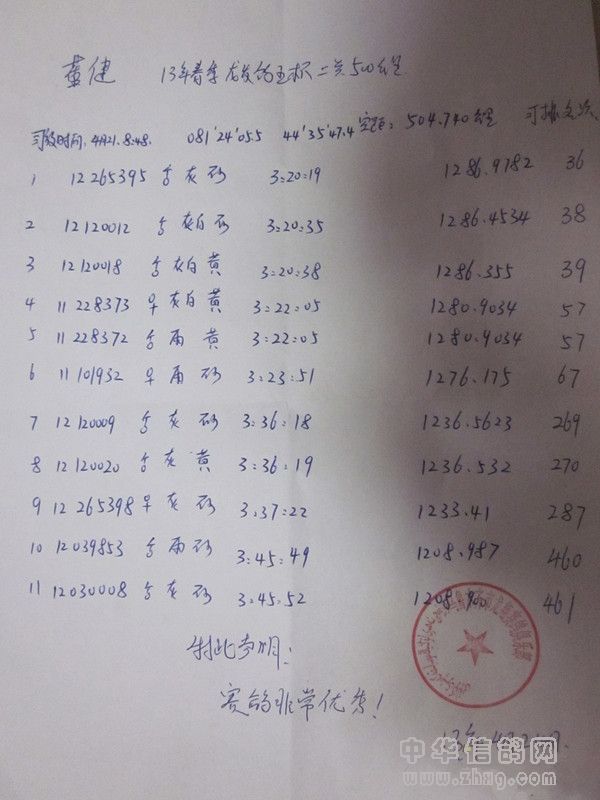 董健 13年春季龙发鸽王杯二关500公里
司放时间:4月21.8:48. 081'24'05.5 44'35'47.4 空距:504.740公里 可排名次
1 12 265395 雄灰砂 3:20:19 1286.9782 36
2 12 120012 雄灰白砂 3:20:35 1286.4534 38
3 12 120018 雄灰白黄 3:20:38 1286.355 39
4 11 228373 灰白黄 3:22:05 1280.9034 57
5 11 228372 雄雨黄 3:22:05 1280.9034 57
6 11 101932 雨砂 3:23:51 1276.175 67
7 12 120009 雄灰砂 3:36:18 1236.5623 269
8 12 120020 雄灰黄 3:36:19 1236.532 270
9 12 265398 灰砂 3:37:22 1233.41 287
10 12 039853 雄雨砂 3:45:49 1208.987 460
11 12 030008 雄灰砂 3:45.52 1208.900 461
特此声明:
赛鸽非常优秀!
13年4月22日.
中华信鸽网
www.zhxg.com